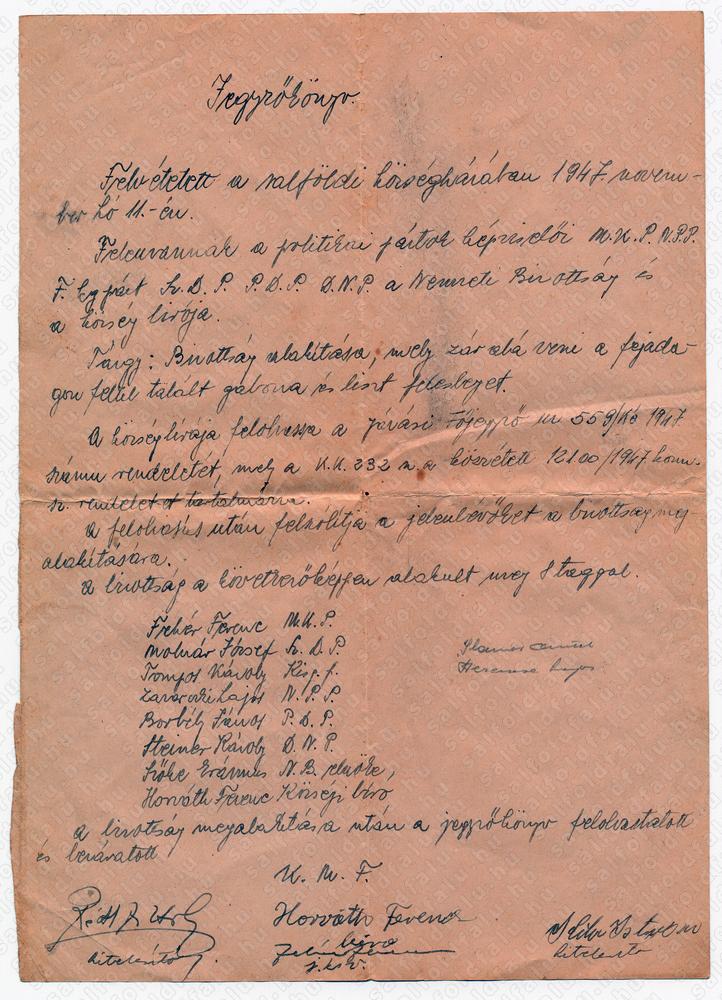 Jegyzőkönyv.
Felvétetett a salföldi községházában 1947 novem-
ber hó 11.-én.
Felenvannak a politikai pártok képviselői M.K.P. N.P.P.
F. kg párt Sz.D.P. P.D.P. D.N.P. a Nemzeti Bizottság és
a község bírója.
Tárgy: Bizottság alakítása, mely zár alá veszi a fejada-
gon felül talált gabona és liszt felesleget.
A község bírája felolvassa a járási Főjegyző úr 559/Kö 1947
számu rendeletét, mely a K.K. 232 sz.a közzétett 12100/1947 korm.
sz. rendeletet tartalmazza.
A felolvasás után felszólítja a jelenlévőket a bizottság meg
alakítására.
A bizottság a következőképpen alakult meg 8 taggal.
Fehér Ferenc M.K.P.
Molnár József Sz.D.P.
Trompos Károly Kisg.f.
Zavarczki Lajos N.P.P.
Borbély János P.D.P.
Steiner Károly D.N.P.
Szőke Erázmus N.B. elnöke,
Horváth Ferenc Községi bíró
A bizottság megalakítása után a jegyzőkönyv felolvastatott
és bezáratott
K. M. F.
Horváth Ferenc
bíró
hitelesítő
István